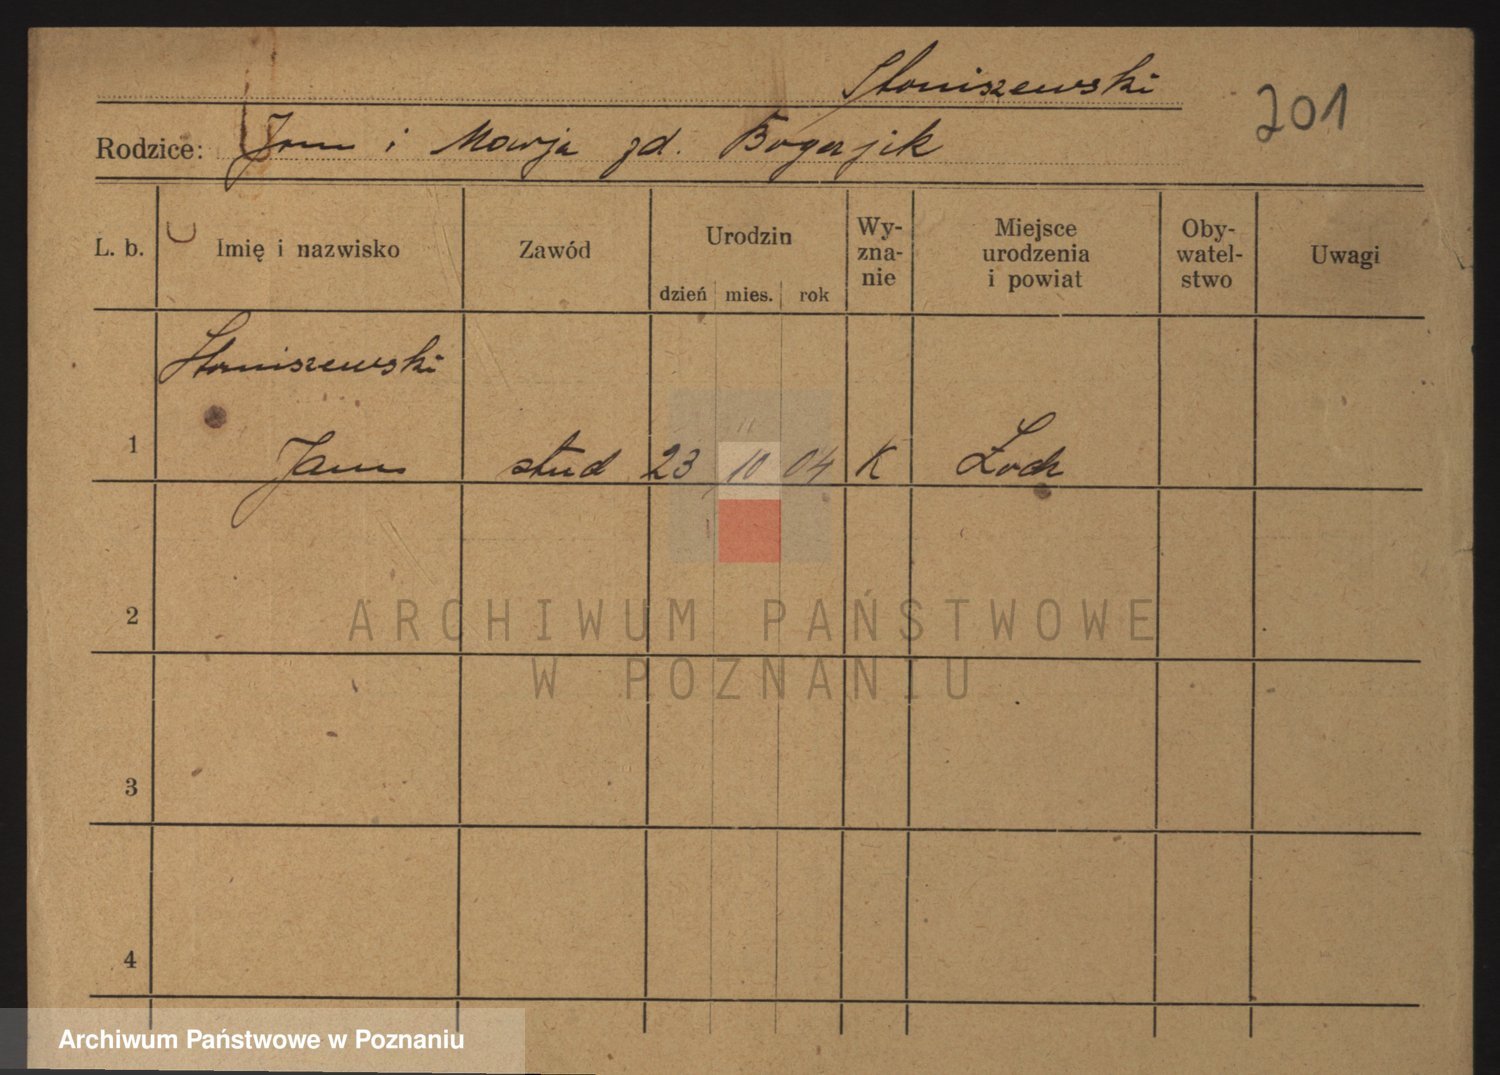 Staniszewski
201
Rodzice: Jan i Marja zd.
L. b. Imię i nazwisko Zawód Urodzin dzień mies. rok Wy-zna-nie Miejsce urodzenia i powiat Oby-watel-stwo Uwagi
Staniszewski
1 Jan stud 23 10 04 K
2
3
4
ARCHIWUM PAŃSTWOWE
W POZNANIU
Archiwum Państwowe w Poznaniu